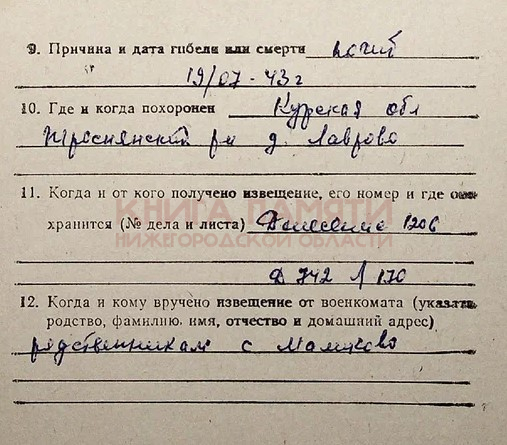 9. Причина и дата гибели или смерти погиб
19/07-43 г
10. Где и когда похоронен Курская обл
Троснянский р н д. Лаврово
11. Когда и от кого получено извещение, его номер и где оно
хранится (№ дела и листа) Донесение 1206
КНИГА ПАМЯТИ
НИЖЕГОРОДСКОЙ ОБЛАСТИ
Д 742 Л 170
12. Когда и кому вручено извещение от военкомата (указать
родство, фамилию, имя, отчество и домашний адрес)
родственникам с